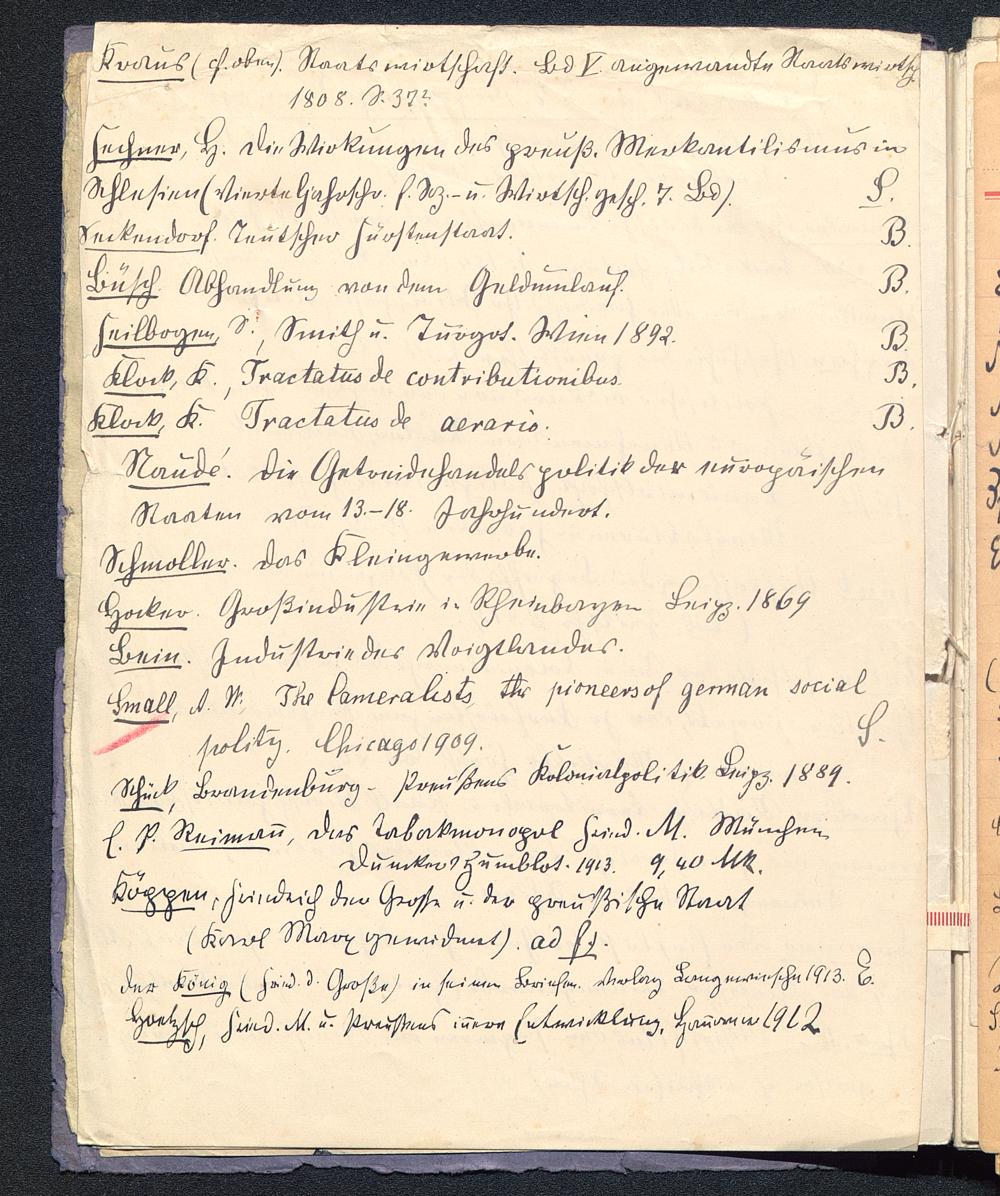 Kraus (cf. oben). Staatswirtschaft. Bd V. angewandte Staatswirtsch.
1808. S. 37?
Fechner, H. Die Wirkungen des preuß. Merkantilismus in
Schlesien (Vierteljahrschr. f. Soz.- u. Wirtsch. gesch. 7. Bd). S.
Seckendorf. Teutscher Fürstenstaat. B.
Büsch. Abhandlung von dem Geldumlauf. B.
Feilbogen, S., Smith u. Turgot. Wien 1892. B.
Klock, K., Tractatus de contributionibus B.
Klock, K. Tractatus de aerario. B.
Naudé. Die Getreidehandelspolitik der europäischen
Staaten vom 13.-18. Jahrhundert.
Schmoller. Das Kleingewerbe.
Hocker. Großindustrie in Rheinbayern Leipz. 1869
Bein. Industrie des Voigtlandes.
Small, A. W., The Cameralists, the pioneers of german social
polity. Chicago 1909. S.
Schück, Brandenburg-Preußens Kolonialpolitik Leipz. 1889.
E. P. Reimann, Das Tabakmonopol Fried. d. M. München
Duncker Humblot. 1913. 9,40 Mk.
Köppen, Friedrich der Grosse u. der preußische Staat
(Karl Marx gewidmet). ad
Der König (Fried. d. Große) in seinen Briefen. Verlag Langewiesche 1913. E.
Hoetzsch, Fried. d. M. u. Preußens innere Entwicklung, Hannover 1912